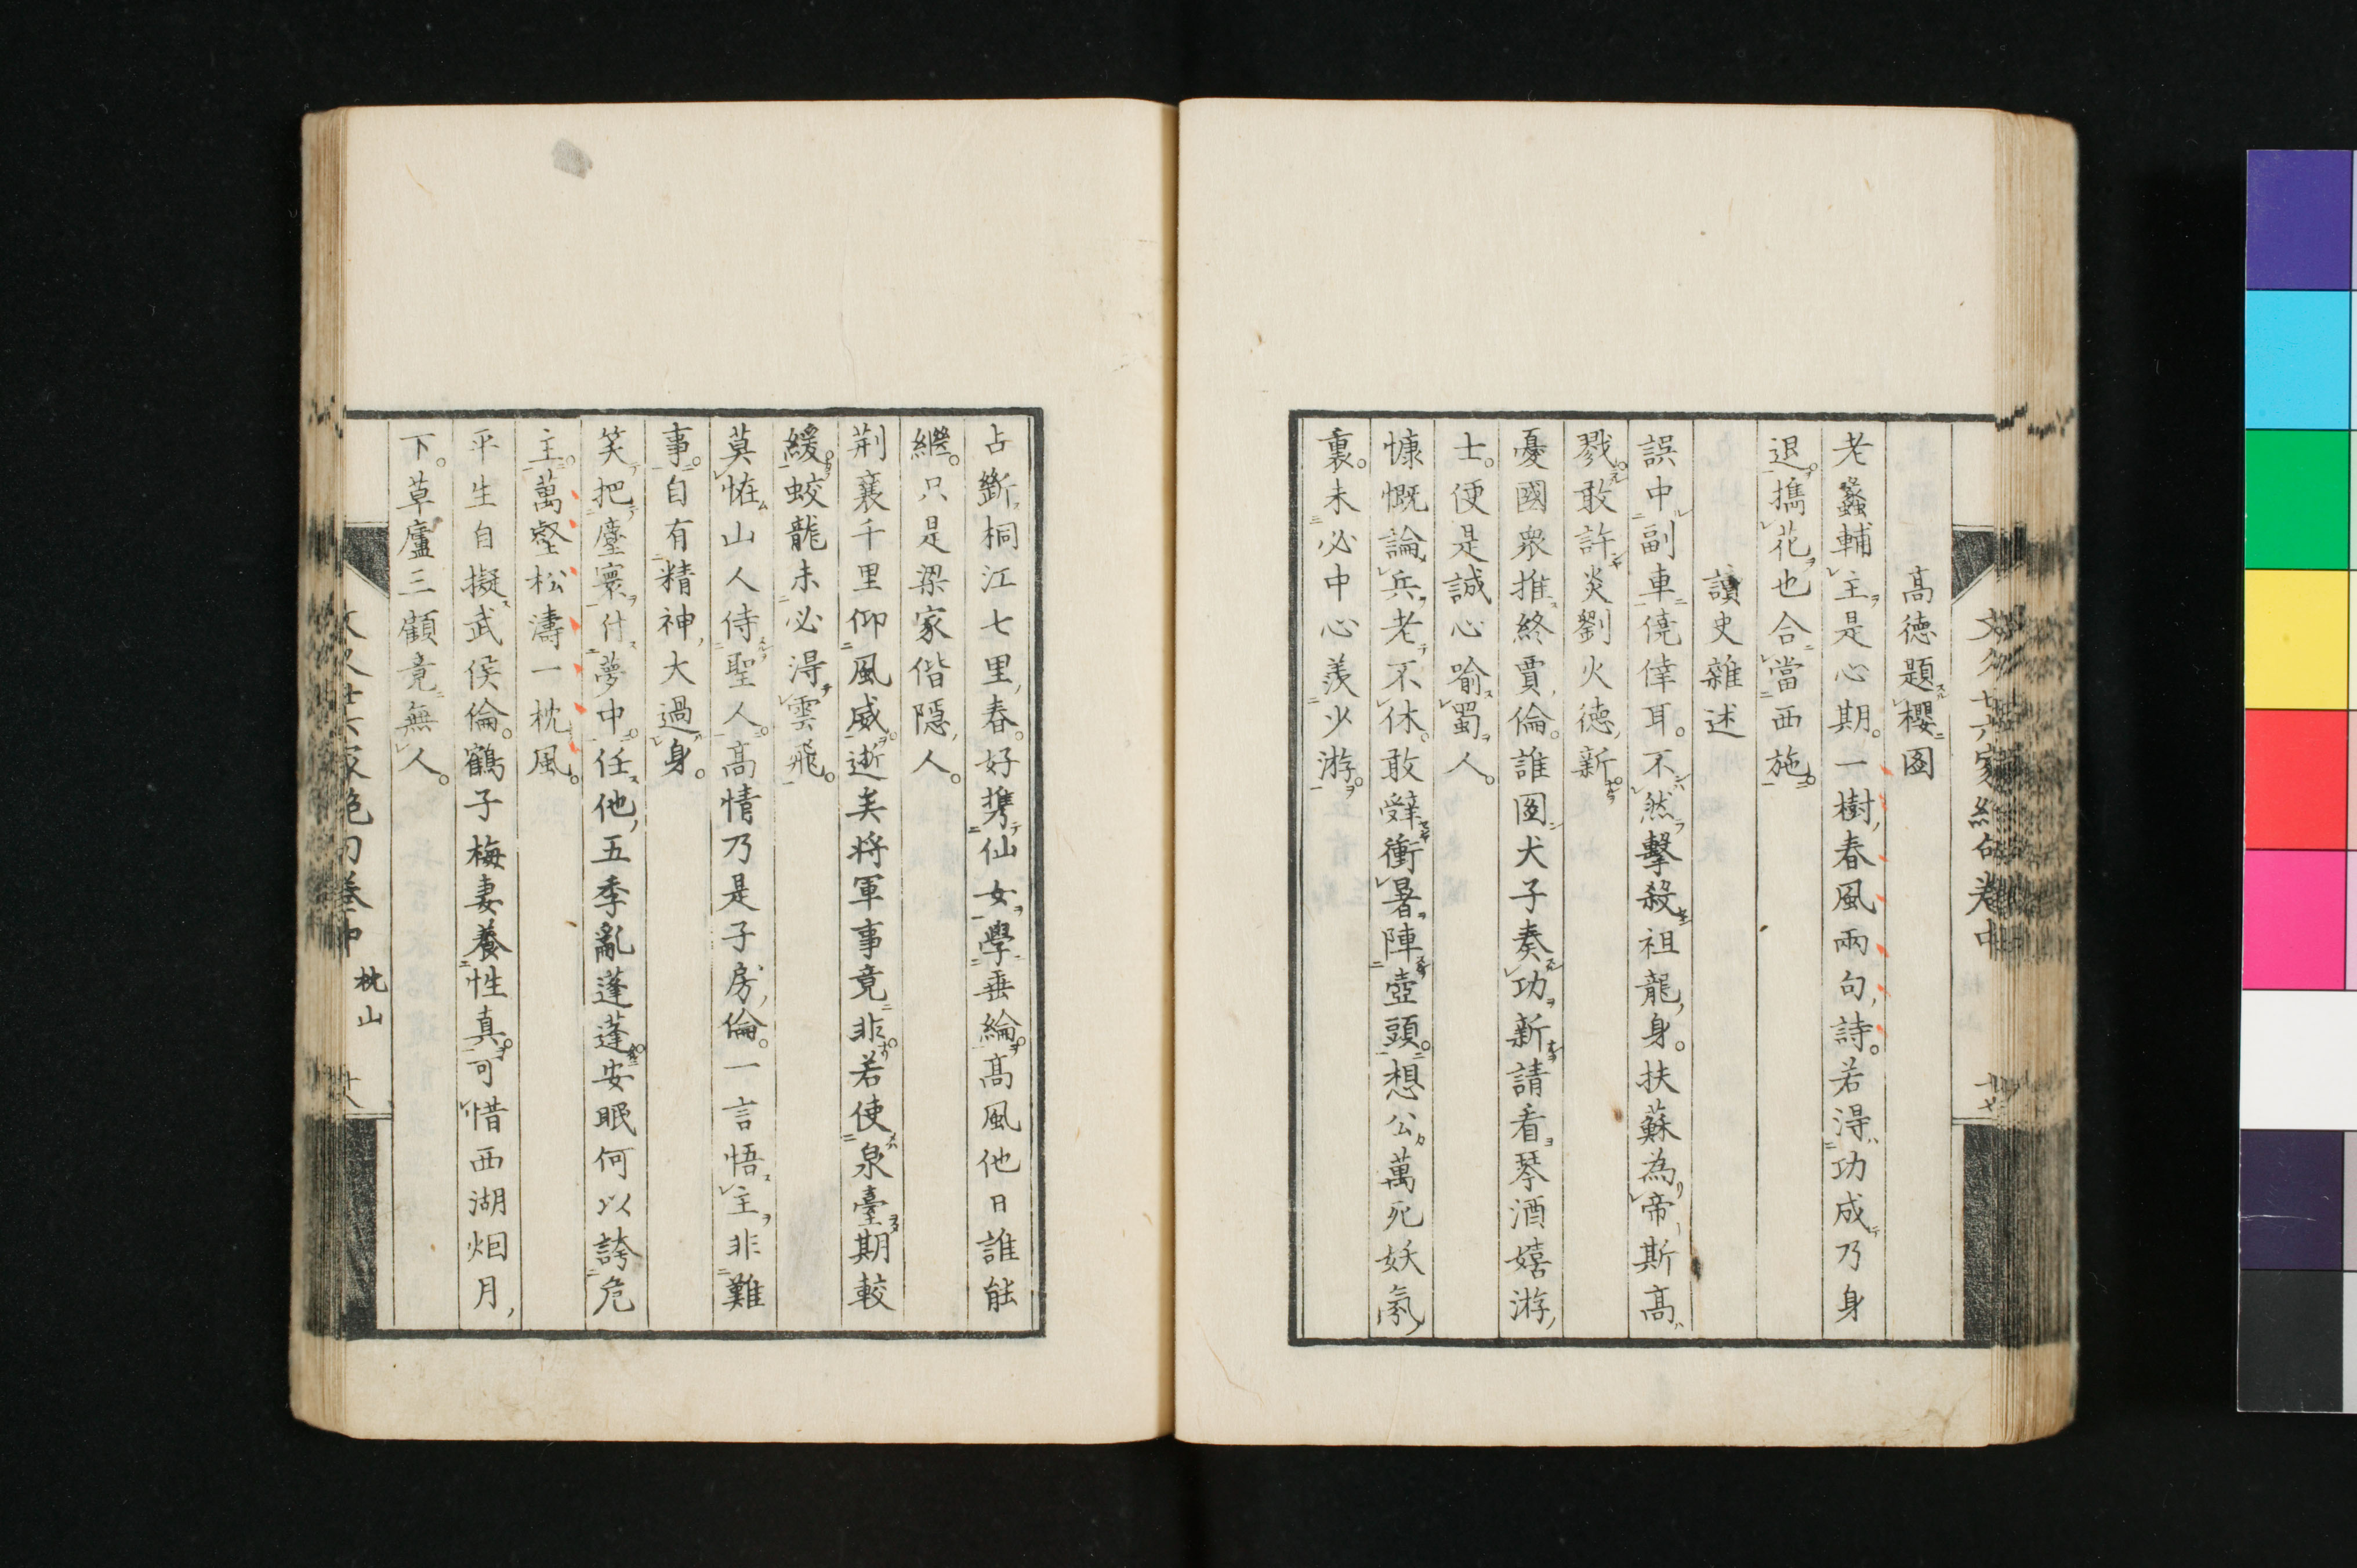 高徳題櫻圖
老蠡輔主是心期。一樹春風兩句詩。若得功成乃身
退。攜花也合當西施。
讀史雜述
誤中副車僥倖耳。不然擊殺祖龍身。扶蘇為帝斯高
戮。敢許炎劉火德新
憂國衆推終賈倫。誰圖犬子奏功新請看琴酒嬉游
士。便是誠心喻蜀人。
慷慨論兵老不休。敢辤衝暑陣壺頭。想公萬死妖氛
裏。未必中心羨少游。
占斷桐江七里春。好攜仙女學垂綸。高風他日誰能
繼。只是梁家偕隱人。
荆襄千里仰風威。逝矣将軍事竟非。若使泉臺期較
緩。蛟龍未必得雲飛。
莫恠山人侍聖人。高情乃是子房倫。一言悟主非難
事。自有精神大過身。
笑把塵寰付夢中。任他五季亂蓬蓬。安眠何以誇危
主。萬壑松濤一枕風。
平生自擬武侯倫。鶴子梅妻養性真。可惜西湖烟月
下。草廬三顧竟無人。
枕山